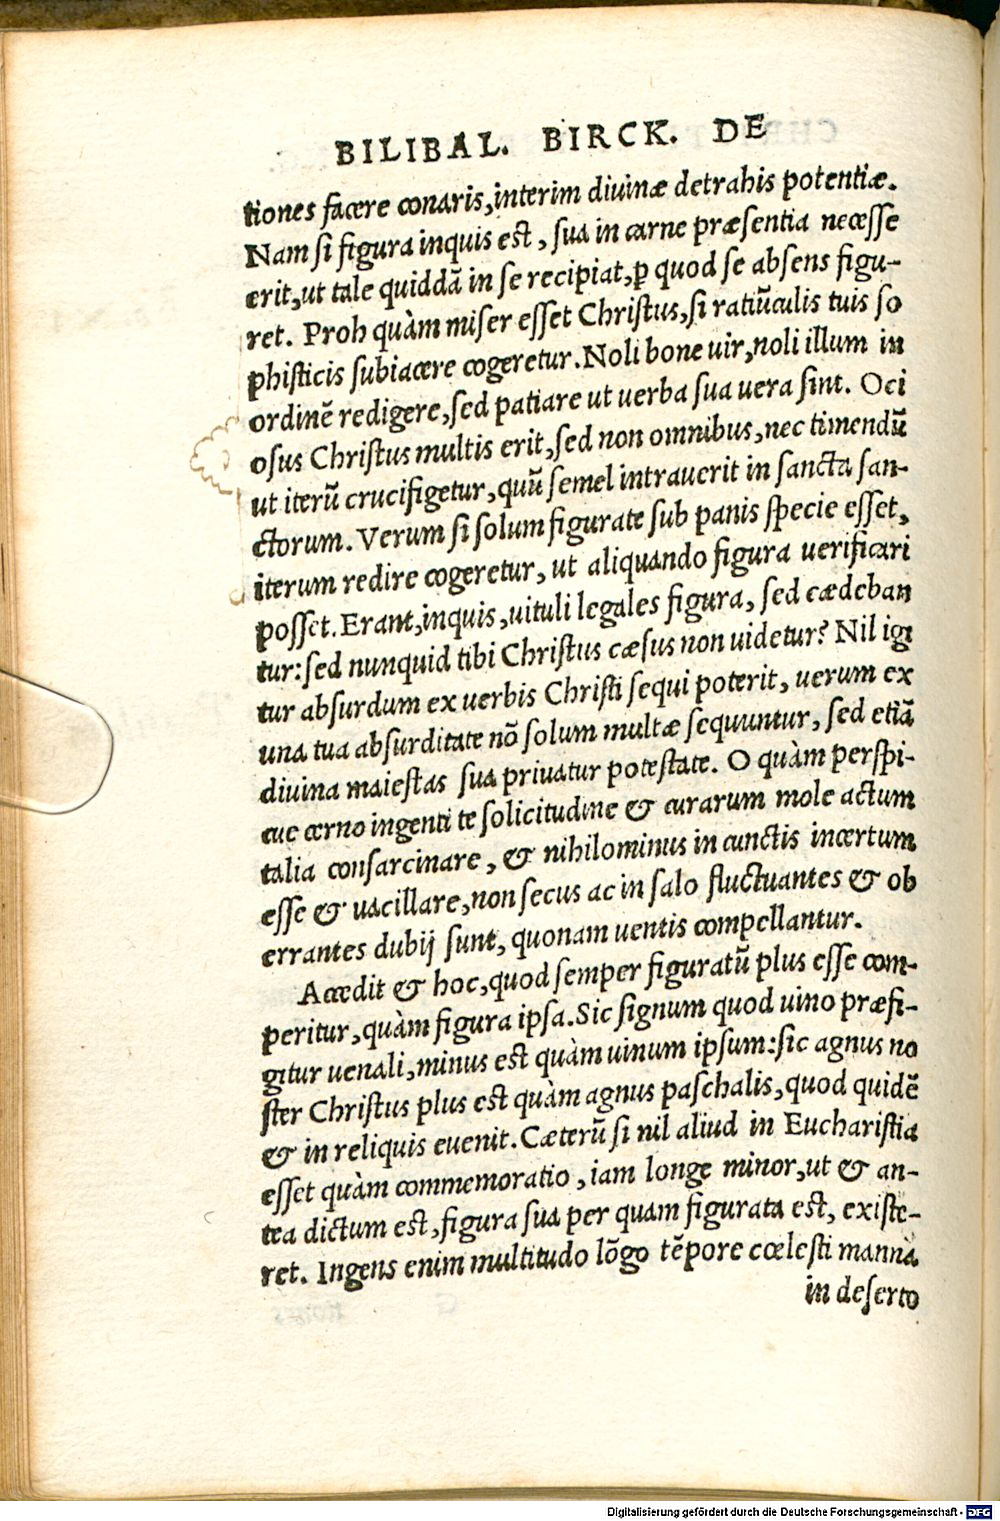 BILIBAL. BIRCK. DE
tiones facere conaris, interim diuinæ detrahis potentiæ.
Nam si figura inquis est, sua in carne præsentia necesse
erit, ut tale quiddã in se recipiat, ꝑ quod se absens figu-
ret. Proh quàm miser esset Christus, si ratiũculis tuis so
phisticis subiacere cogeretur. Noli bone uir, noli illum in
ordinẽ redigere, sed patiare ut uerba sua uera sint. Oci
osus Christus multis erit, sed non omnibus, nec timendũ
ut iterũ crucifigetur, quũ semel intrauerit in sancta san-
ctorum. Verum si solum figurate sub panis specie esset,
iterum redire cogeretur, ut aliquando figura uerificari
posset. Erant, inquis, uituli legales figura, sed cædeban
tur: sed nunquid tibi Christus cæsus non uidetur? Nil igi
tur absurdum ex uerbis Christi sequi poterit, uerum ex
una tua absurditate nõ solum multæ sequuntur, sed etiã
diuina maiestas sua priuatur potestate. O quàm perspi-
cue cerno ingenti te solicitudine & curarum mole actum
talia consarcinare, & nihilominus in cunctis incertum
esse & uacillare, non secus ac in salo fluctuantes & ob
errantes dubij sunt, quonam uentis compellantur.
Accedit & hoc, quod semper figuratũ plus esse com-
peritur, quàm figura ipsa. Sic signum quod uino præfi-
gitur uenali, minus est quàm uinum ipsum: sic agnus no
ster Christus plus est quàm agnus paschalis, quod quidẽ
& in reliquis euenit. Cæterũ si nil aliud in Eucharistia
esset quàm commemoratio, iam longe minor, ut & an-
tea dictum est, figura sua per quam figurata est, existe-
ret. Ingens enim multitudo lõgo tẽpore cœlesti manna
in deserto
Digitalisierung gefördert durch die Deutsche Forschungsgemeinschaft - DFG